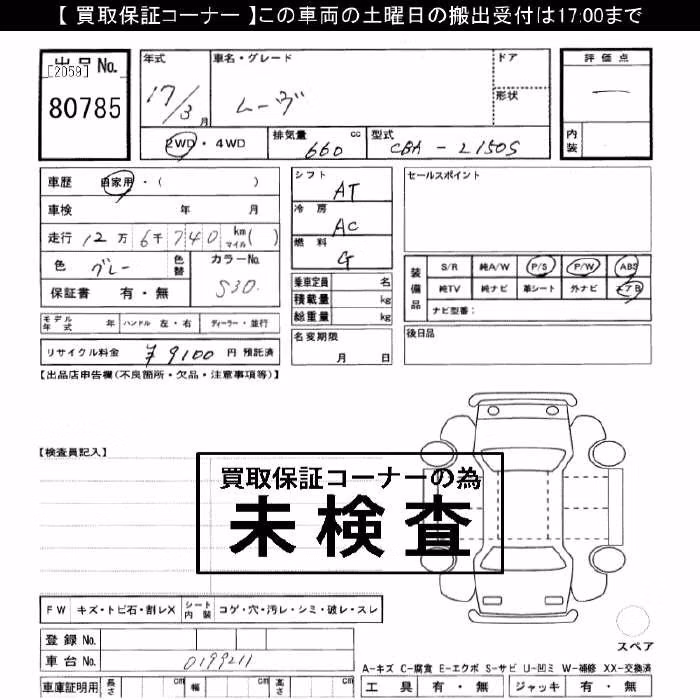 【 買取保証コーナー 】この車両の土曜日の搬出受付は17:00まで
出品No.
[2059]
80785
年式
17/3月
車名・グレード
ムーヴ
ドア
形状
評価点
―
内装
2WD・4WD
排気量 660 cc
型式 CBA-L150S
車歴 自家用・( )
車検 年 月
走行 12万 6千 740 km マイル( )
色 グレー 色替
カラーNo. S30.
保証書 有・無
シフト AT
冷房 AC
燃料 G
乗車定員 名
積載量 kg
総重量 kg
セールスポイント
装備品
S/R 純A/W P/S P/W ABS
純TV 純ナビ 革シート 外ナビ エアB
ナビ型番:
モデル年式 年 ハンドル 左・右 ディーラー・並行
リサイクル料金 ¥9100 円 預託済
名変期限
月 日
後日品
【出品店申告欄(不良箇所・欠品・注意事項等)】
【検査員記入】
買取保証コーナーの為
未検査
FW キズ・トビ石・割レX シート内装 コゲ・穴・汚レ・シミ・破レ・スレ
登録No.
車台No. 0199211
スペア
A-キズ C-腐食 E-エクボ S-サビ U-凹ミ W-補修 XX-交換済
車庫証明用 長さ cm 幅 cm 高さ cm
工具 有・無 ジャッキ 有・無